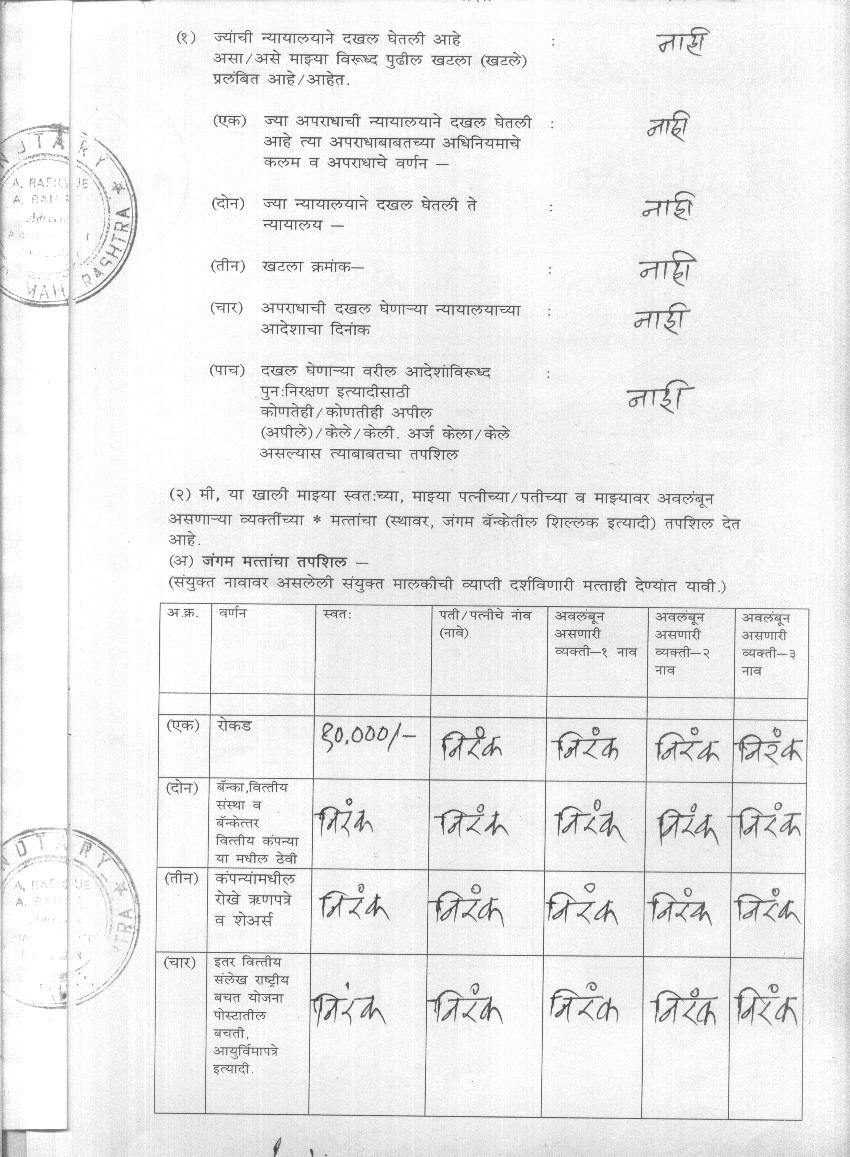 (१) ज्यांची न्यायालयाने दखल घेतली आहे : नाही
असा/असे माझ्या विरूध्द पुढील खटला (खटले)
प्रलंबित आहे/आहेत.
(एक) ज्या अपराधाची न्यायालयाने दखल घेतली : नाही
आहे त्या अपराधाबाबतच्या अधिनियमाचे
कलम व अपराधाचे वर्णन —
(दोन) ज्या न्यायालयाने दखल घेतली ते : नाही
न्यायालय —
(तीन) खटला क्रमांक— : नाही
(चार) अपराधाची दखल घेणाऱ्या न्यायालयाच्या : नाही
आदेशाचा दिनांक
(पाच) दखल घेणाऱ्या वरील आदेशांविरूध्द :
पुन:निरक्षण इत्यादीसाठी नाही
कोणतेही/कोणतीही अपील
(अपीले)/केले/केली. अर्ज केला/केले
असल्यास त्याबाबतचा तपशिल
(२) मी, या खाली माझ्या स्वत:च्या, माझ्या पत्नीच्या/पतीच्या व माझ्यावर अवलंबून
असणाऱ्या व्यक्तींच्या * मत्तांचा (स्थावर, जंगम बॅन्केतील शिल्लक इत्यादी) तपशिल देत
आहे.
(अ) जंगम मत्तांचा तपशिल —
(संयुक्त नावावर असलेली संयुक्त मालकीची व्याप्ती दर्शविणारी मत्ताही देण्यांत यावी.)
अ.क्र. वर्णन स्वत: पती/पत्नीचे नांव अवलंबून अवलंबून अवलंबून
(नावे) असणारी असणारी असणारी
व्यक्ती—१ नाव व्यक्ती—२ व्यक्ती—३
नाव नाव
(एक) रोकड १०,०००/— निरंक निरंक निरंक निरंक
(दोन) बॅन्का,वित्तीय
संस्था व
बॅन्केत्तर निरंक निरंक निरंक निरंक निरंक
वित्तीय कंपन्या
या मधील ठेवी
(तीन) कंपन्यांमधील
रोखे ऋणपत्रे निरंक निरंक निरंक निरंक निरंक
व शेअर्स
(चार) इतर वित्तीय
संलेख राष्ट्रीय
बचत योजना निरंक निरंक निरंक निरंक निरंक
पोस्टातील
बचती,
आयुर्विमापत्रे
इत्यादी.
NOTARY
MAHARASHTRA
NOTARY